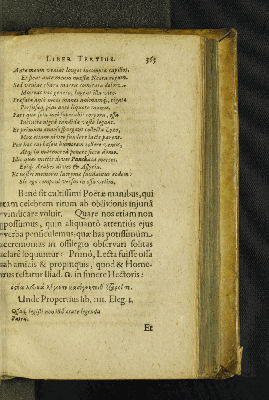 LIBER TERTIUS. 365
Ante meum veniat longos incompta capillos,
Et fleat ante meum mœsta Neæra rogum.
Sed veniat charæ matris comitata dolore:
Mœreat hæc genero, mœreat illa viro.
Præfatæ ante meos manes animamq; rogatæ
Perfusæq; pias ante liquore manus,
Pars quæ sola mei superabit corporis, ossa
Incinctæ nigra candida veste legant.
Et primum annoso spargant collecta Lyæo,
Mox etiam niveo fundere lacte parent.
Post hæc carbaseis humorem tollere velis,
Atq; in marmorea ponere sicca domo.
Illic quas mittit dives Panchaia merces,
Eoiq; Arabes, dives & Assyria.
Et nostri memores lacrymæ fundantur eodem:
Sic ego componi versus in ossa velim.
Bene sit cultissimi Poëtæ manibus, qui
tam celebrem ritum ab oblivionis injuriâ
vindicare voluit. Quare nos etiam non
possumus, quin aliquantò attentiùs ejus
verba penficulemus: quæ has potissimùm
ceremonias in ossilegio observari solitas
clarè loquuntur: Primò, Lecta fuisse ossa
ab amicis & propinquis, quod & Home-
rus testatur Iliad. Ω. in funere Hectoris:
Unde Propertius lib. IIII. Eleg. I.
Ossaq; legisti non illa ætate legenda
Patris.
Et